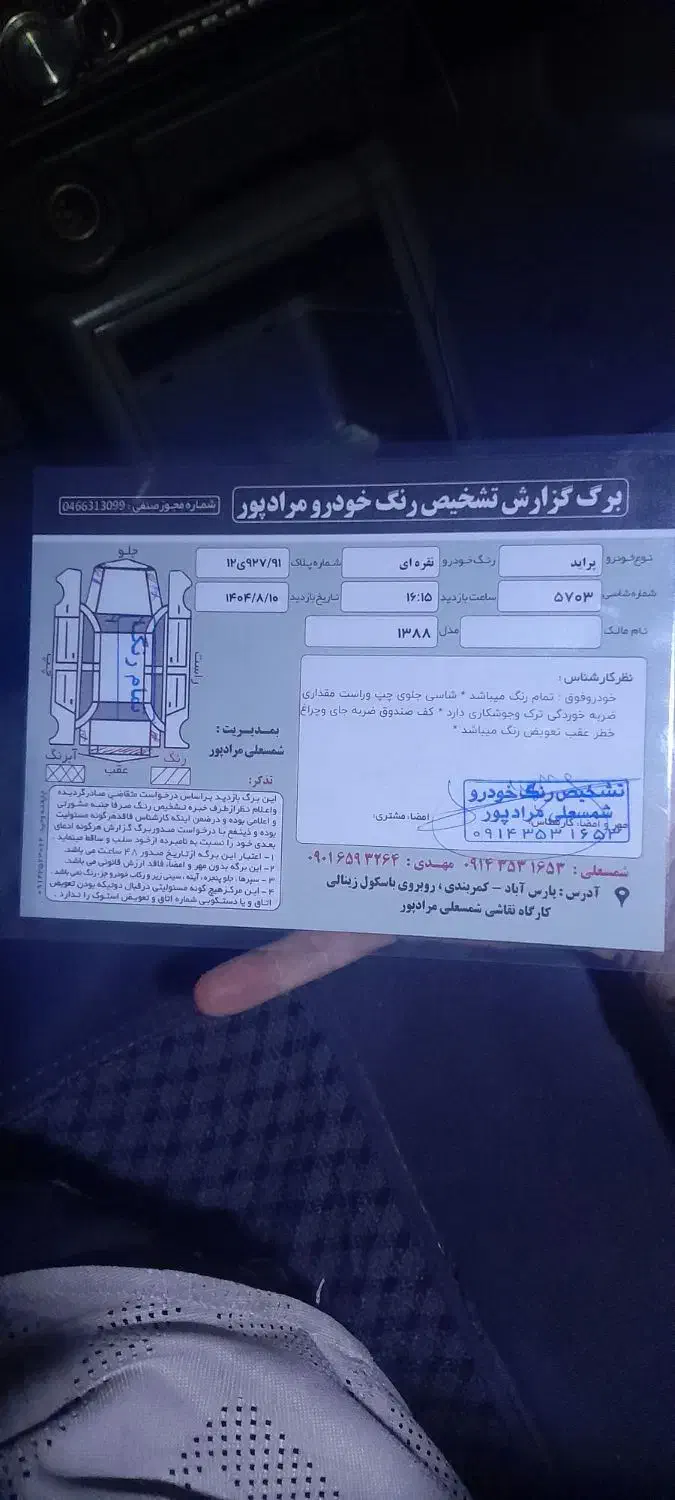 برگ گزارش تشخیص رنگ خودرو مرادپور
شماره مجوز صنفی : 0466313099
نوع خودرو پراید رنگ خودرو نقره ای شماره پلاک ۱۲ی۹۲۷/۹۱
شماره شاسی ۵۷۰۳ ساعت بازدید ۱۶:۱۵ تاریخ بازدید ۱۴۰۴/۸/۱۰
نام مالک مدل ۱۳۸۸
نظر کارشناس :
خودروفوق : تمام رنگ میباشد * شاسی جلوی چپ وراست مقداری
ضربه خوردگی ترک وجوشکاری دارد * کف صندوق ضربه جای وچراغ
خطر عقب تعویض رنگ میباشد *
جلو
چپ
راست
تمام رنگ
عقب
آبرنگ
رنگ
بمدیریت :
شمسعلی مرادپور
تذکر:
این برگ بازدید براساس درخواست متقاضی صادرگردیده
واعلام نظرازطرف خبره تشخیص رنگ صرفا جنبه مشورتی
و اعلامی بوده و درضمن اینکه کارشناس فاقدهرگونه مسئولیت
بوده و ذینفع با درخواست صدوربرگ گزارش هرگونه ادعای
بعدی خود را نسبت به نامبرده ازخود سلب و ساقط مینماید .
۱- اعتبار این برگه ازتاریخ صدور ۴۸ ساعت می باشد.
۲- این برگه بدون مهر و امضاء فاقد ارزش قانونی می باشد.
۳- سپرها ، جلو پنجره ، آینه ، سینی زیر و رکاب خودرو جزء رنگ نمی باشد .
۴- این مرکز هیچ گونه مسئولیتی درقبال دوتیکه بودن تعویض
اتاق و یا دستکوبی شماره اتاق و تعویض استوک را ندارد .
امضاء مشتری:
مهر و امضاء کارشناس:
تشخیص رنگ خودرو
شمسعلی مرادپور
۰۹۱۴۳۵۳۱۶۵۳
شمسعلی : ۰۹۱۴ ۳۵۳ ۱۶۵۳ مهدی : ۰۹۰۱ ۶۵۹ ۳۲۶۴
آدرس : پارس آباد - کمربندی ، روبروی باسکول زینالی
کارگاه نقاشی شمسعلی مرادپور